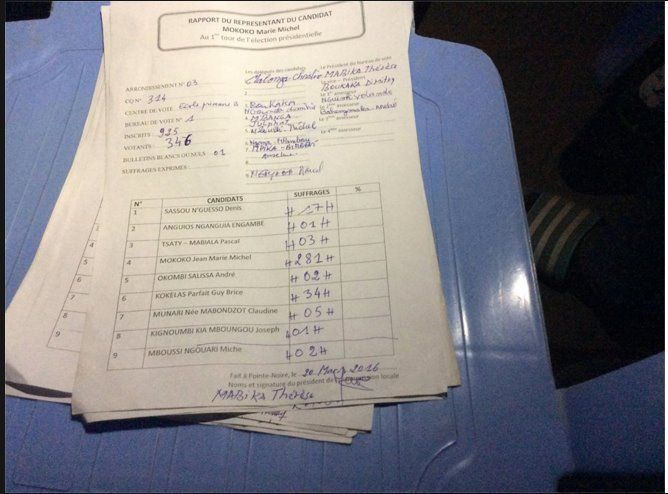 RAPPORT DU REPRESENTANT DU CANDIDAT
MOKOKO Marie Michel
Au 1er tour de l'élection présidentielle
Les délégués des candidats
Le Président du bureau de vote
MABIKA Thérèse
ARRONDISSEMENT N° 03
CQ N° 314
CENTRE DE VOTE : Ecole primaire B
BUREAU DE VOTE N° 1
INSCRITS : 995
VOTANTS : 346
BULLETINS BLANCS OU NULS : 01
SUFFRAGES EXPRIMES :
BOUKAKA
NGUIMBI Yolande
4ème assesseur
N° CANDIDATS SUFFRAGES %
1 SASSOU N'GUESSO Denis # 17 #
2 ANGUIOS NGANGUIA ENGAMBE # 01 #
3 TSATY – MABIALA Pascal # 03 #
4 MOKOKO Jean Marie Michel # 281 #
5 OKOMBI SALISSA André # 02 #
6 KOKELAS Parfait Guy Brice # 34 #
7 MUNARI Née MABONDZOT Claudine # 05 #
8 KIGNOUMBI KIA MBOUNGOU Joseph # 01 #
9 MBOUSSI NGOUARI Miche # 02 #
Fait à Pointe-Noire, le 20 Mars 2016
Noms et signature du président de la commission locale
MABIKA Thérèse